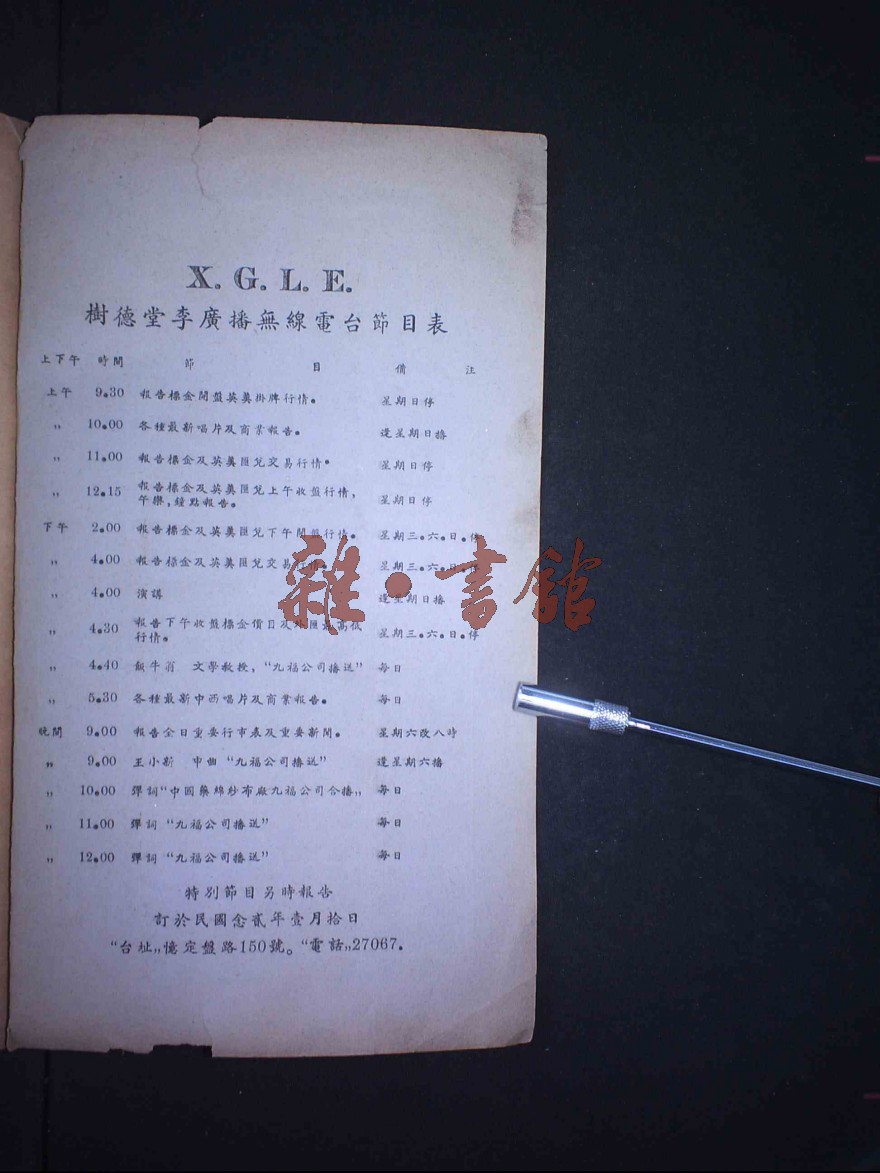 X. G. L. E.
樹德堂李廣播無線電台節目表
上下午 時間 節 目 備 注
上午 9.30 報告標金開盤英美掛牌行情。 星期日停
〃 10.00 各種最新唱片及商業報告。 逢星期日播
〃 11.00 報告標金及英美匯兌交易行情。 星期日停
〃 12.15 報告標金及英美匯兌上午收盤行情，
午樂，鐘點報告。 星期日停
下午 2.00 報告標金及英美匯兌下午開盤行情。 星期三.六.日.停
〃 4.00 報告標金及英美匯兌交易行情。 星期三.六.日.停
〃 4.00 演講 逢星期日播
〃 4.30 報告下午收盤標金價目及外匯最高低
行情。 星期三.六.日.停
〃 4.40 飯牛翁 文學教授，“九福公司播送” 每日
〃 5.30 各種最新中西唱片及商業報告。 每日
晚間 9.00 報告全日重要行市表及重要新聞。 星期六改八時
〃 9.00 王小新 申曲 “九福公司播送” 逢星期六播
〃 10.00 彈詞“中國藥綿紗布廠九福公司合播„ 每日
〃 11.00 彈詞 “九福公司播送” 每日
〃 12.00 彈詞 “九福公司播送” 每日
特別節目另時報告
訂於民國念貳年壹月拾日
“台址„憶定盤路150號。“電話„27067.
雜·書館